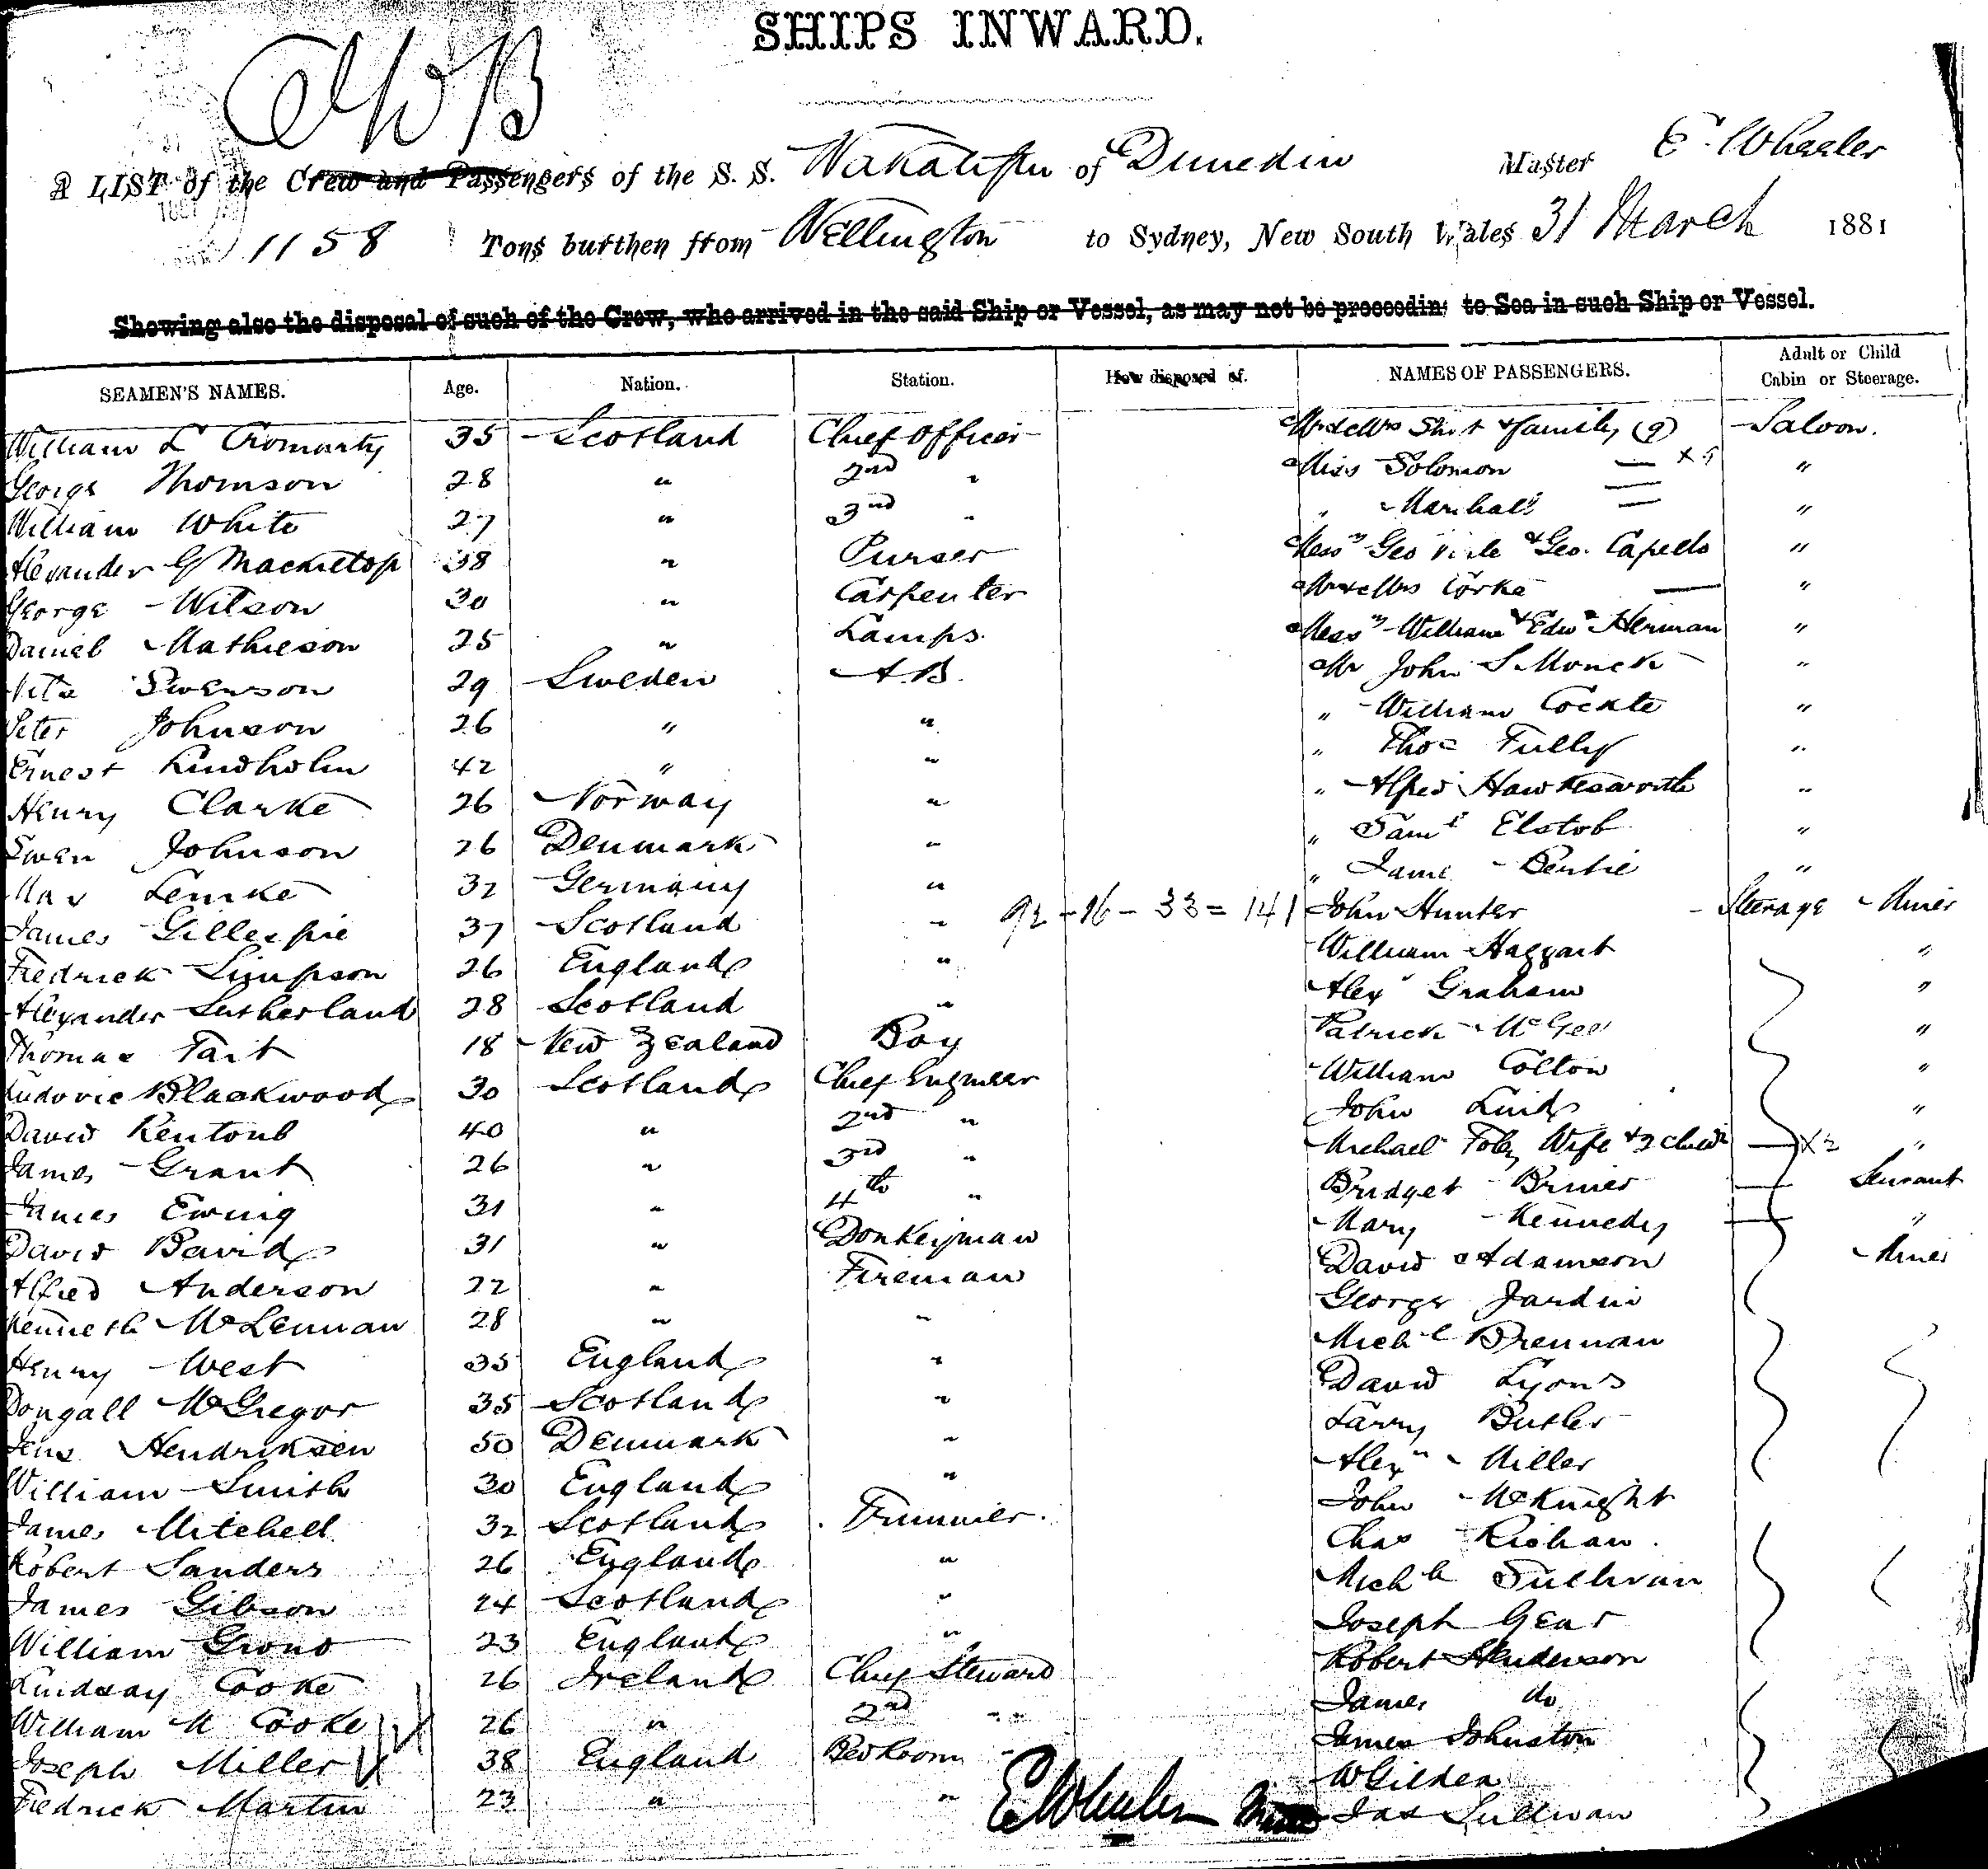 SHIPS INWARD.
A LIST of the Crew and Passengers of the S. S. Wakatipu of Dunedin Master E Wheeler
1158 Tons burthen from Wellington to Sydney, New South Wales 31 March 1881
Showing also the disposal of such of the Crew, who arrived in the said Ship or Vessel, as may not be proceeding to Sea in such Ship or Vessel.
SEAMEN'S NAMES. Age. Nation. Station. How disposed of. NAMES OF PASSENGERS. Adult or Child Cabin or Steerage.
William L Cromarty 35 Scotland Chief Officer Mr & Mrs & family (9) Saloon.
George Thomson 28 " 2nd " Miss Solomon "
William White 27 " 3rd " " Marshall "
Alexander G 38 " Purser Messrs Geo & Geo. Capello "
George Wilson 30 " Carpenter Mr & Mrs Corke "
Daniel Mathieson 25 " Lamps. Messrs William & Edwd Herman "
Swenson 29 Sweden A.B. Mr John S Monck "
Peter Johnson 26 " " " William Cockle "
Ernest Lindholm 42 " " " Thos Tully "
Henry Clarke 26 Norway " " Alfred Hawkesworth "
Swen Johnson 26 Denmark " " Saml Elstob "
Max Lemke 32 Germany " " "
James Gillespie 37 Scotland " 92 - 16 - 33 = 141 John Hunter Steerage Miner
Fredrick Simpson 26 England " William Haggart "
Alexander Sutherland 28 Scotland " Alex Graham "
Thomas Tait 18 New Zealand Boy Patrick McGee "
Ludovic Blackwood 30 Scotland Chief Engineer William Colton "
David 40 " 2nd " John "
James Grant 26 " 3rd " Michael Foley Wife & 2 child "
James Ewing 31 " 4th " Bridget Servant
David 31 " Donkeyman Mary Kennedy "
Alfred Anderson 22 " Fireman David Adamson Miner
Kenneth McLennan 28 " " George Jardin
Henry West 35 England " Michl Brennan
Dougall McGregor 35 Scotland " David Lyons
Jens Hendriksen 50 Denmark " Larry Butler
William Smith 30 England " Alexr Miller
James Mitchell 32 Scotland Trimmer. John McKnight
Robert Sanders 26 England " Chas
James Gibson 24 Scotland " Michl Sullivan
William Grono 23 England " Joseph Gear
Lindsay Cooke 26 Ireland Chief Steward Robert Henderson
William M Cooke 26 " 2nd " James do
Joseph Miller 38 England Bedroom " James Johnston
Fredrick Martin 23 " " W Gilden
E Wheeler Jas Sullivan